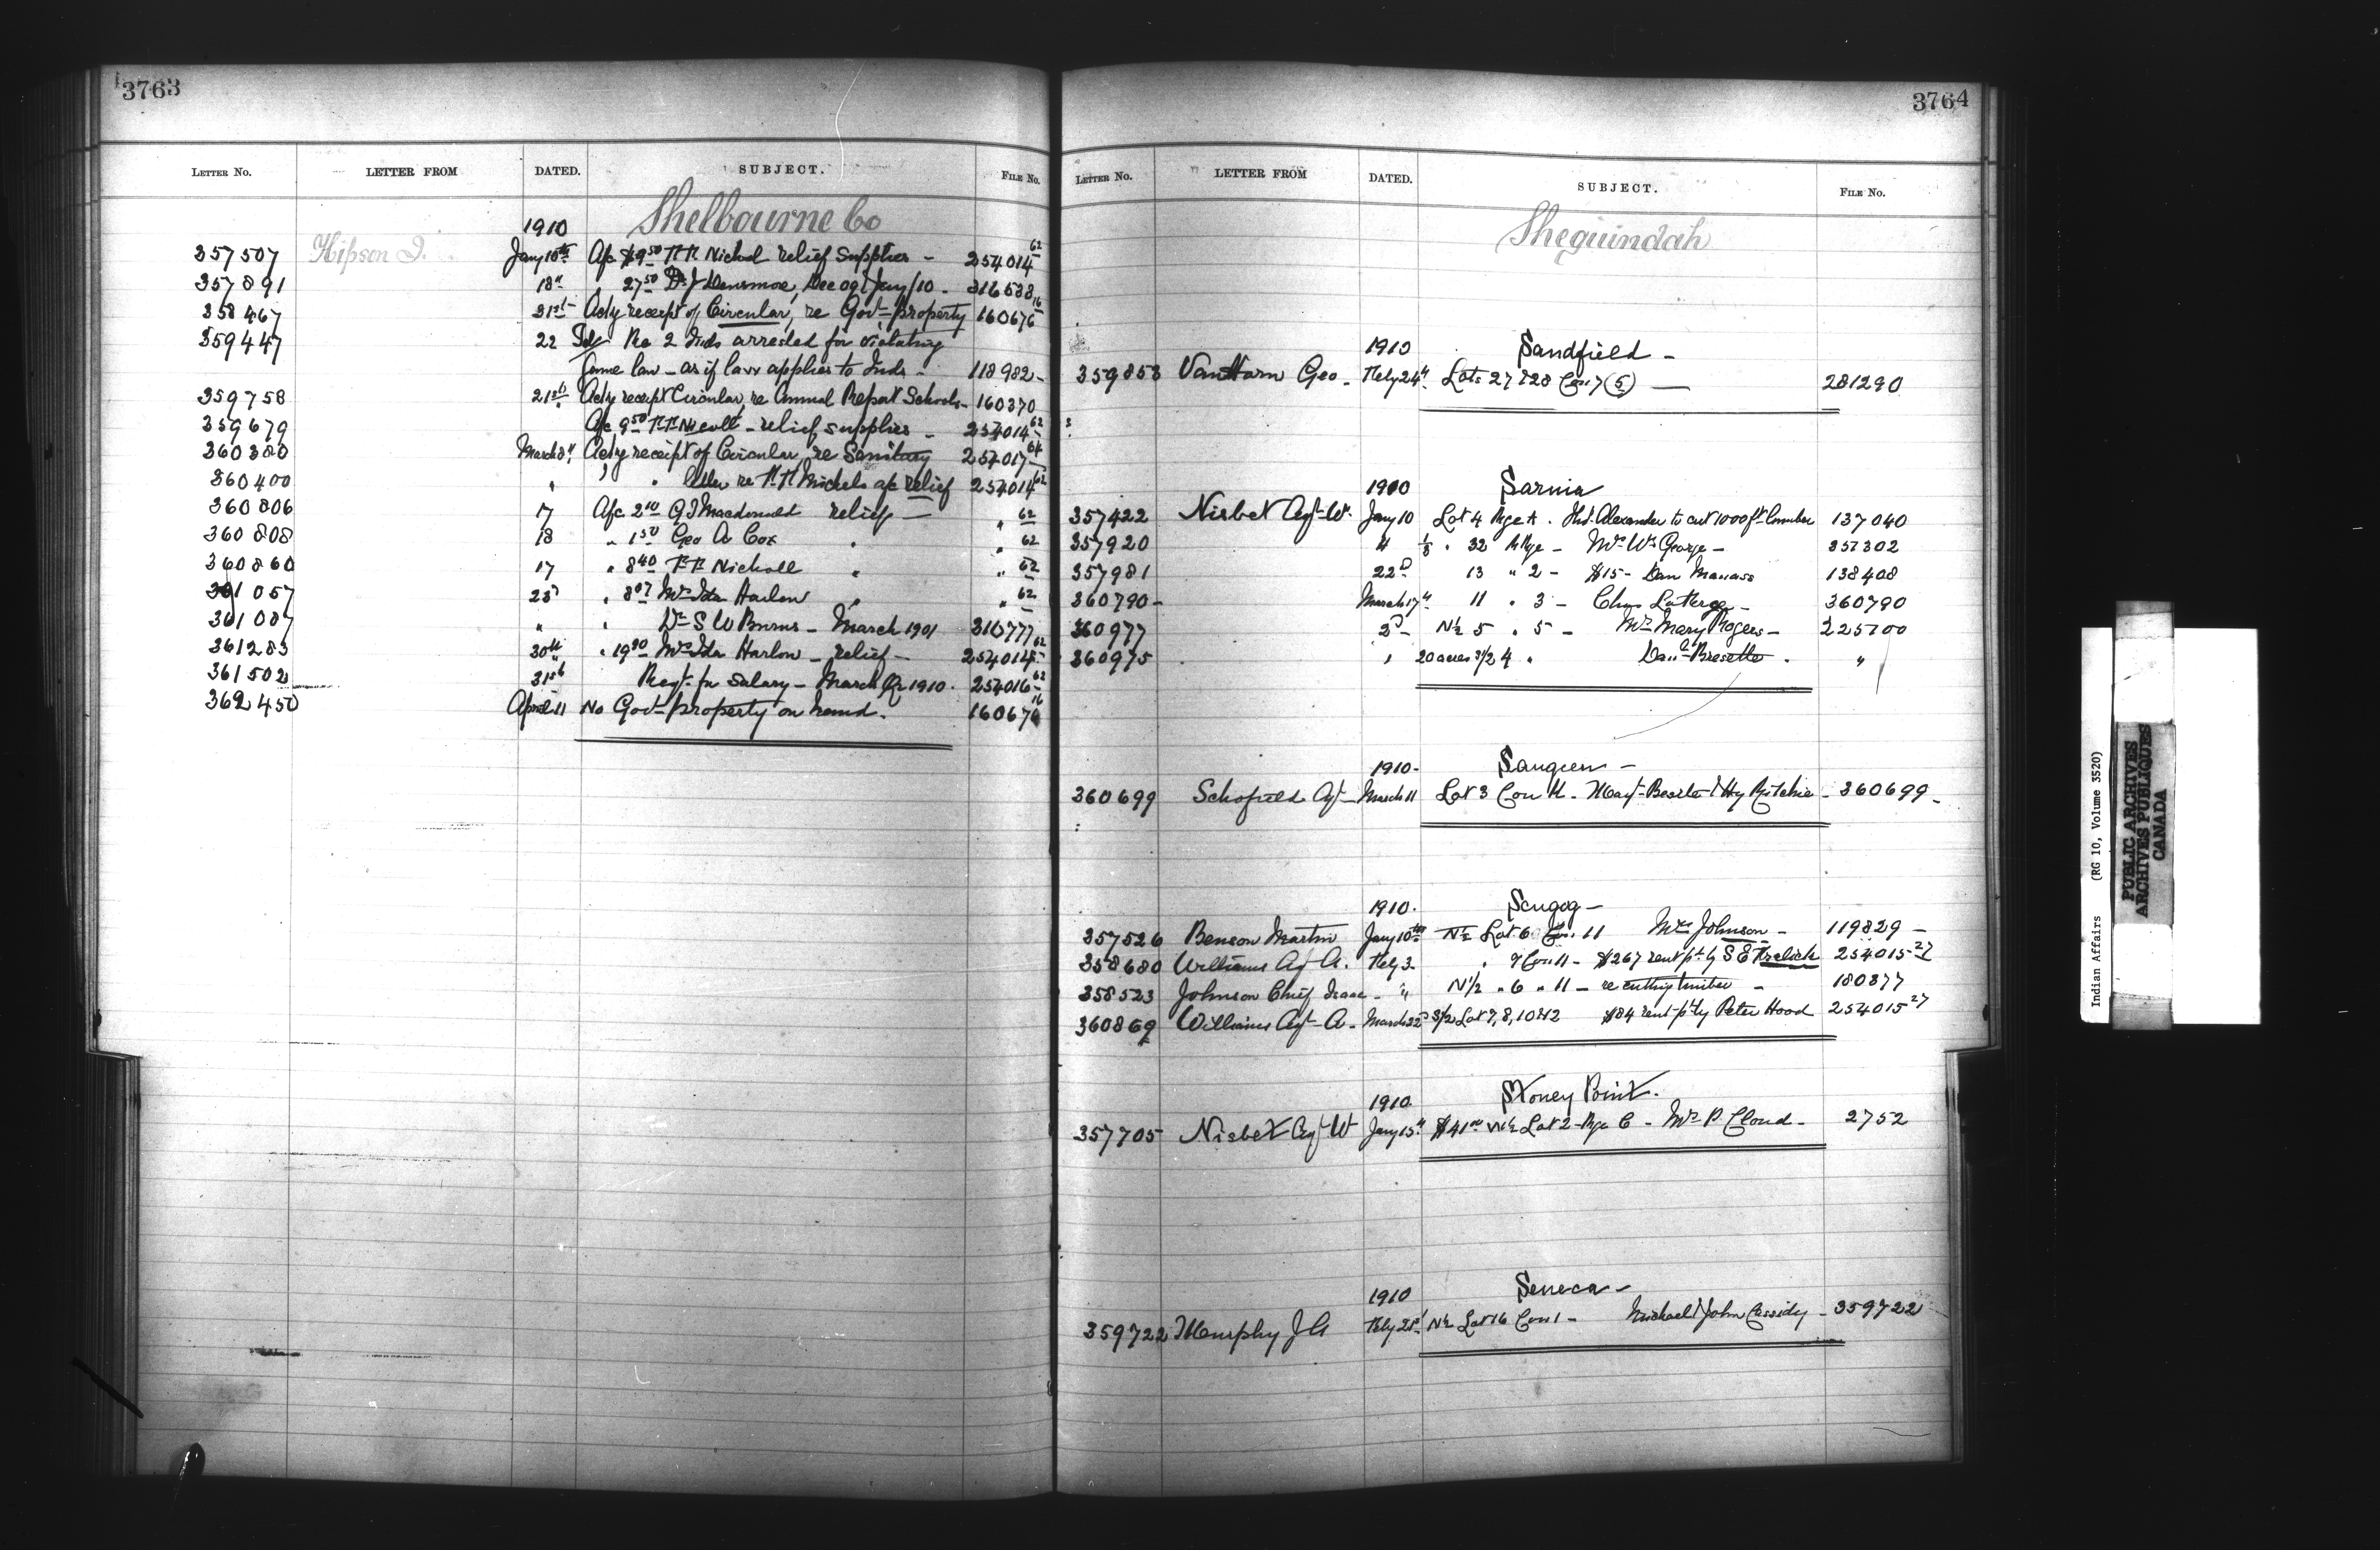 3763
LETTER No. LETTER FROM DATED. SUBJECT. FILE No.
1910 Shelbourne Co
357507 Hipson J. Jany 10th A/c $9.50 Nickol relief supplies - 254014 62
357891 18" " 27.50 Dr J Densmoe, Dec 09 & Jany/10 - 316588
358467 31st Ackg receipt of Circular, re Govt property 160676 16
359447 22 Tel Re 2 Inds arrested for violating
Game law - as if law applies to Inds - 118982 -
359758 21st Ackg receipt Circular, re Annual Report Schools - 160370
359679 " A/c 9.50 - relief supplies - 254014 62
360380 March 8" Ackg receipt of Circular, re Sanitary 254017 64
360400 " " " letter re Nickels a/c relief 254014 62
360806 17 A/c 2.00 Macdonald relief - " 62
360808 18 " 1.50 Geo A Cox " " 62
360860 17 " 8.40 Nickoll " " 62
361057 23d " 8.07 Mrs Ida Harlow " " 62
361087 " " Dr S W Burns - March 1901 316777
361283 30th " 19.90 Mrs Ida Harlow - relief - 254014 62
361502 31st Reqt for Salary - March Qr 1910. 254016 62
362450 April 11 No Govt property on hand. 160676 16
3764
LETTER No. LETTER FROM DATED. SUBJECT. FILE No.
Sheguindah
1910 Sandfield -
359853 VanHorn Geo - Feby 24" Lots 27 & 28 Con 7 (5) - 281290
1910 Sarnia
357422 Nisbet Agt W. Jany 10 Lot 4 Rge A. Alexander to cut 1000 ft lumber 137040
357920 " 32 Rge - Mrs Wm George - 357302
357981 22d 13 " 2 - $15 - Dan Manass 138408
360790 - March 17" 11 " 3 - Chas - 360790
360977 2d - N½ 5 " 5 - Mrs Mary Rogers - 225700
360975 " 20 acres S½ 4 " Bresette . "
1910 - Saugeen -
360699 Schofield Agt - March 11 Lot 3 Con - & Hy Ritchie - 360699 -
1910. Scugog -
357526 Benson Martin Jany 10th N½ Lot 6 Con. 11 Mrs Johnson - 119829 -
358680 Williams Agt A. Feby 3 " 9 Con 11 - $267 rent pd by S E 254015 27
358523 Johnson Chief Isaac - " N½ " 6 " 11 - re cutting timber - 180377
360869 Williams Agt A - March 22d S½ Lot 7, 8, 10 & 12 $84 rent pd by Peter Hood 254015 27
1910 Stoney Point.
357705 Nisbet Agt W Jany 15" $41.00 N½ Lot 2 - Rge C - Mrs P Cloud - 2752
1910 Seneca -
359722 Murphy J A Feby 25 N½ Lot 16 Con 1 - Michael & John Cassidy - 359722
Indian Affairs (RG 10, Volume 3520)
PUBLIC ARCHIVES
ARCHIVES PUBLIQUES
CANADA